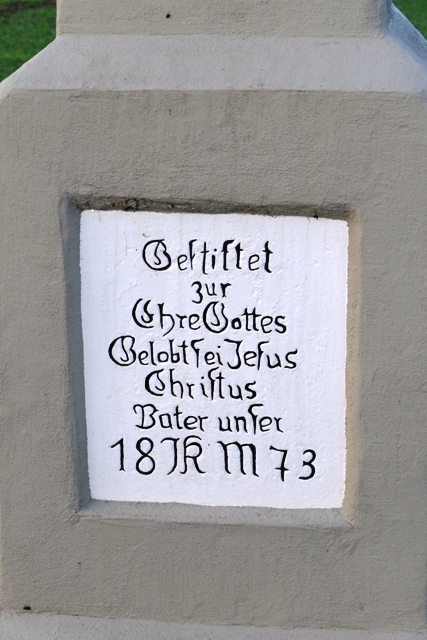 Geſtiftet
zur
Ehre Gottes
Gelobt ſei Jeſus
Chriſtus
Vater unſer
18 JK M 73